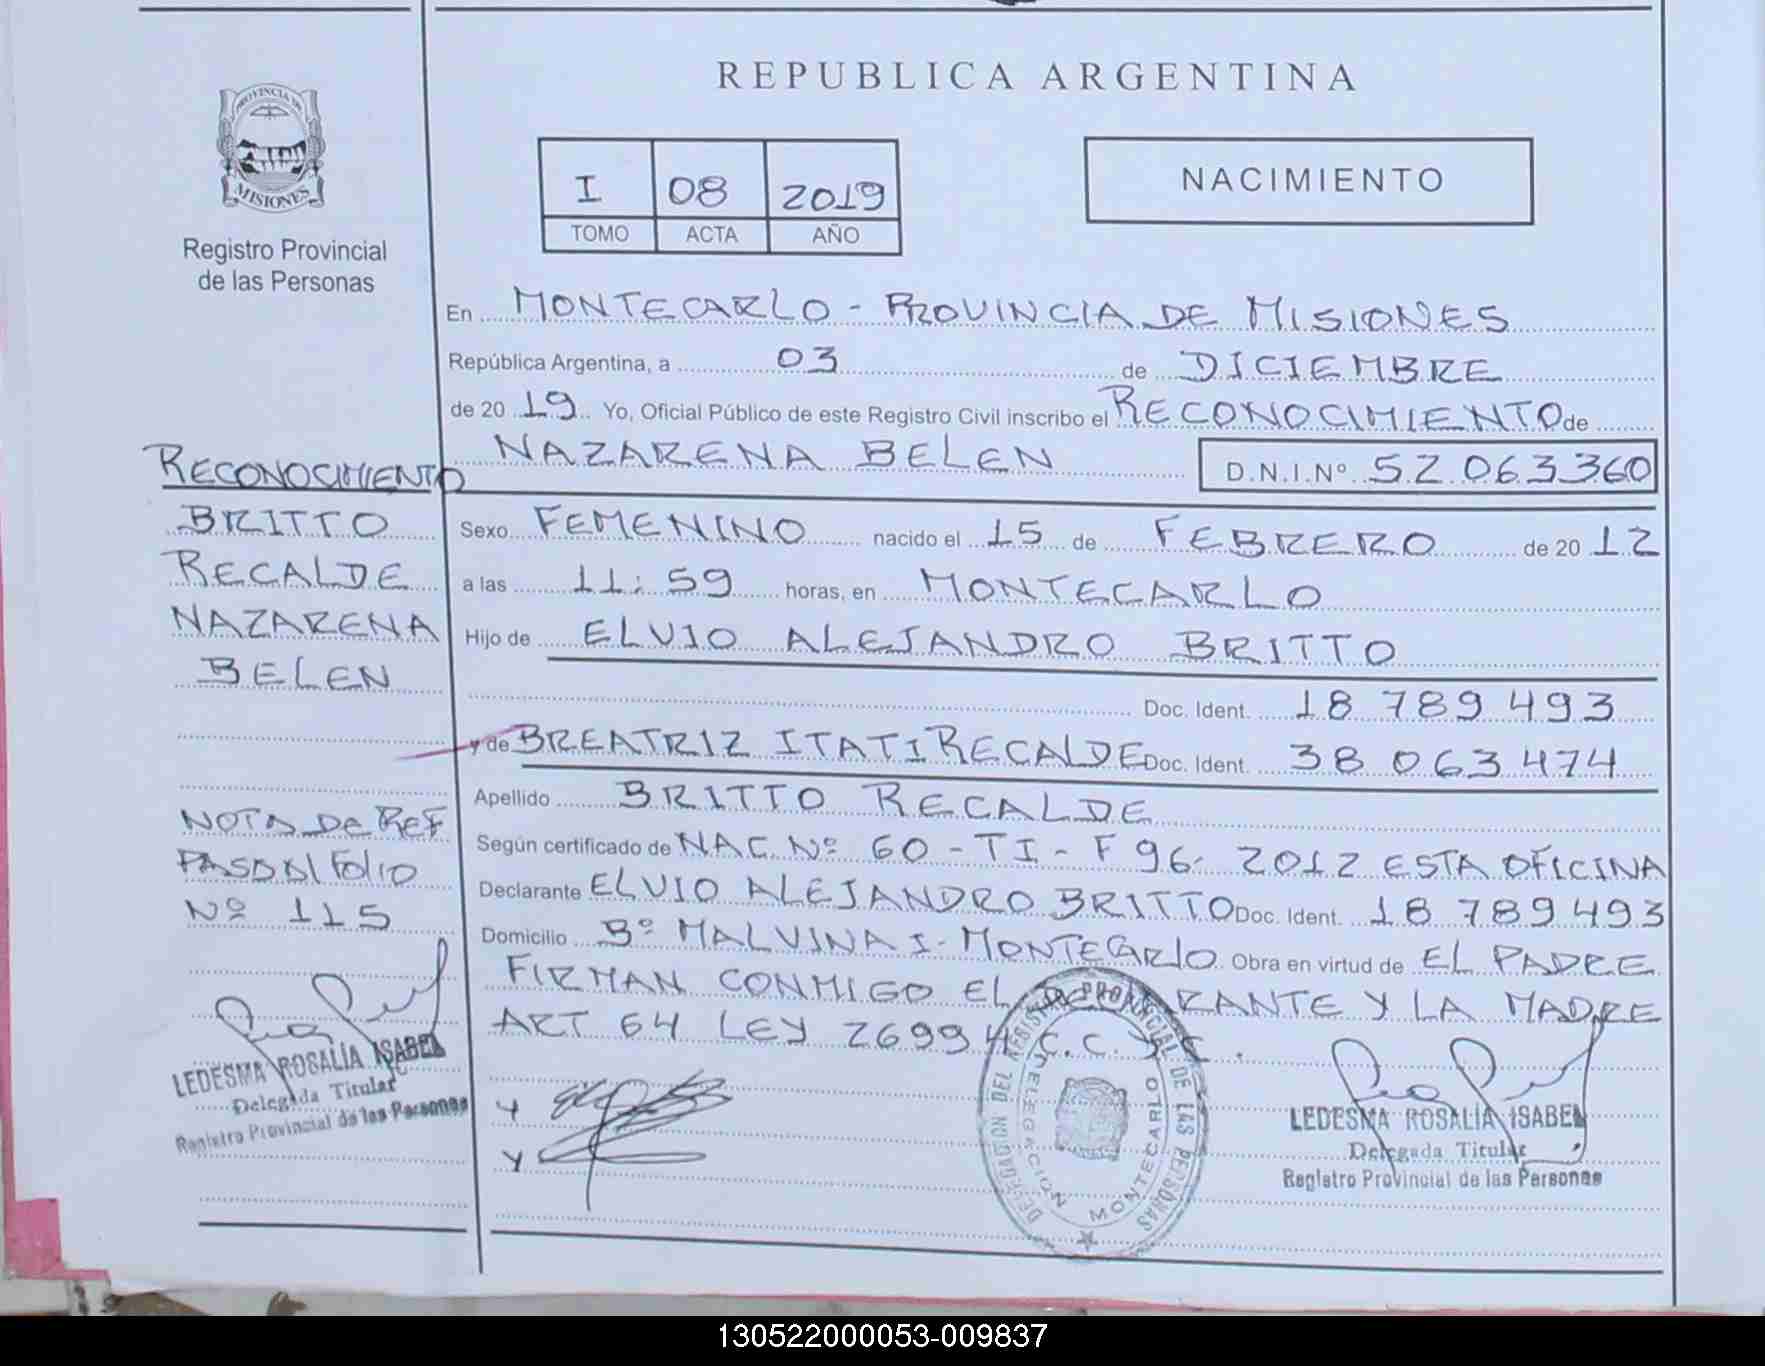 REPUBLICA ARGENTINA
PROVINCIA DE
MISIONES
Registro Provincial
de las Personas
I 08 2019
TOMO ACTA AÑO
NACIMIENTO
En MONTECARLO - PROVINCIA DE MISIONES
República Argentina, a 03 de DICIEMBRE
de 20 19 Yo, Oficial Público de este Registro Civil inscribo el RECONOCIMIENTO de
NAZARENA BELEN D.N.I.Nº 52.063.360
Sexo FEMENINO nacido el 15 de FEBRERO de 20 12
a las 11:59 horas, en MONTECARLO
Hijo de ELVIO ALEJANDRO BRITTO
Doc. Ident. 18 789 493
y de BREATRIZ ITATI RECALDE Doc. Ident. 38 063 474
Apellido BRITTO RECALDE
Según certificado de NAC. Nº 60 - TI - F 96 - 2012 ESTA OFICINA
Declarante ELVIO ALEJANDRO BRITTO Doc. Ident. 18 789 493
Domicilio Bº MALVINA I - MONTECARLO Obra en virtud de EL PADRE
FIRMAN CONMIGO EL DECLARANTE Y LA MADRE
ART 64 LEY 26994 C.C.
RECONOCIMIENTO
BRITTO
RECALDE
NAZARENA
BELEN
NOTA DE REF
PASO AL FOLIO
Nº 115
LEDESMA ROSALÍA ISABEL
Delegada Titular
Registro Provincial de las Personas
DELEGACION MONTECARLO
LEDESMA ROSALÍA ISABEL
Delegada Titular
Registro Provincial de las Personas
130522000053-009837